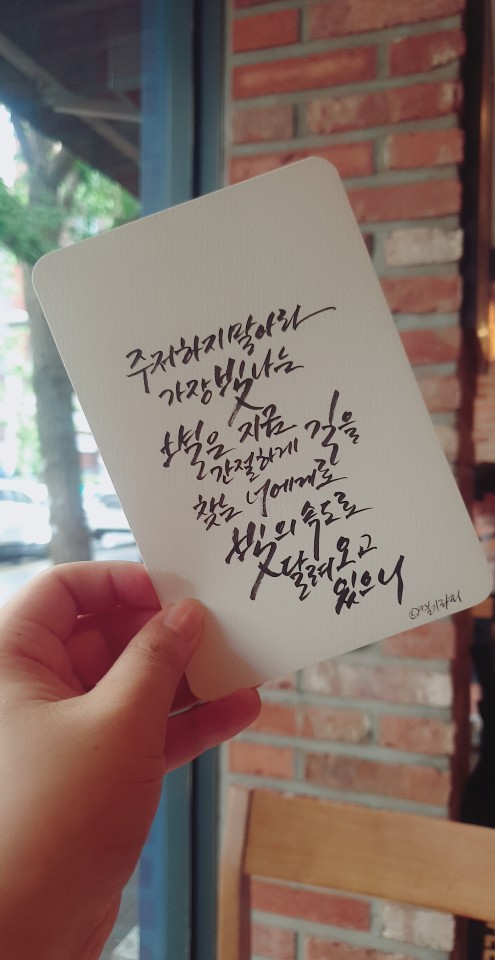 주저하지말아라
가장 빛나는
별은 지금
간절하게 길을
찾는 너에게로
빛의 속도로
달려오고
있으니